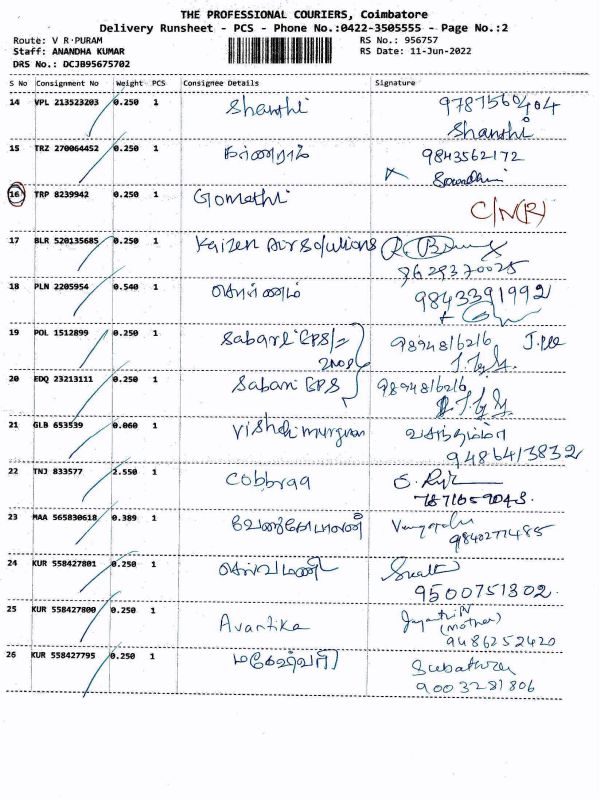 THE PROFESSIONAL COURIERS, Coimbatore
Delivery Runsheet - PCS - Phone No.:0422-3505555 - Page No.:2
Route: V R PURAM
RS No.: 956757
Staff: ANANDHA KUMAR
RS Date: 11-Jun-2022
DRS No.: DCJB95675702
S No Consignment No Weight PCS Consignee Details Signature
14 VPL 213523203 0.250 1 Shanthi 9787560404
Shanthi
15 TRZ 270064452 0.250 1 9843562172
16 TRP 8239942 0.250 1 Gomathi
C/N(R)
17 BLR 520135685 0.250 1 Kaizen Air Solutions
9629370025
18 PLN 2205954 0.540 1 சொர்ணம் 9843391992
19 POL 1512899 0.250 1 Sabari EPS/= 9894816216
2nos
20 EDQ 23213111 0.250 1 Sabari EPS 9894816216
21 GLB 653539 0.060 1 Vishnu murgan வசந்தம்மா
9486413832
22 TNJ 833577 2.550 1 Cobbraa
7871659048
23 MAA 565830618 0.389 1 வேணுகோபாலன் Venugopalan
9840277485
24 KUR 558427801 0.250 1 செல்வமணி
9500751302
25 KUR 558427800 0.250 1 Avantika Jayanthi
(mother)
9486252420
26 KUR 558427795 0.250 1 மகேஷ்வரி
9003281806